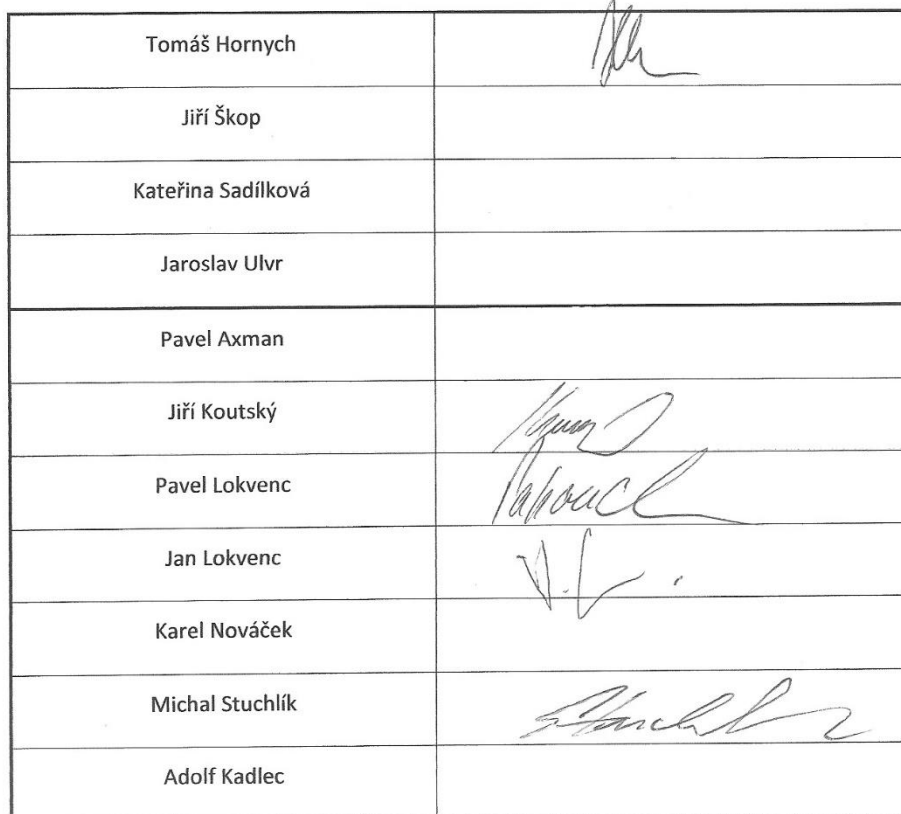 Tomáš Hornych
Jiří Škop
Kateřina Sadílková
Jaroslav Ulvr
Pavel Axman
Jiří Koutský
Pavel Lokvenc
Jan Lokvenc
Karel Nováček
Michal Stuchlík
Adolf Kadlec